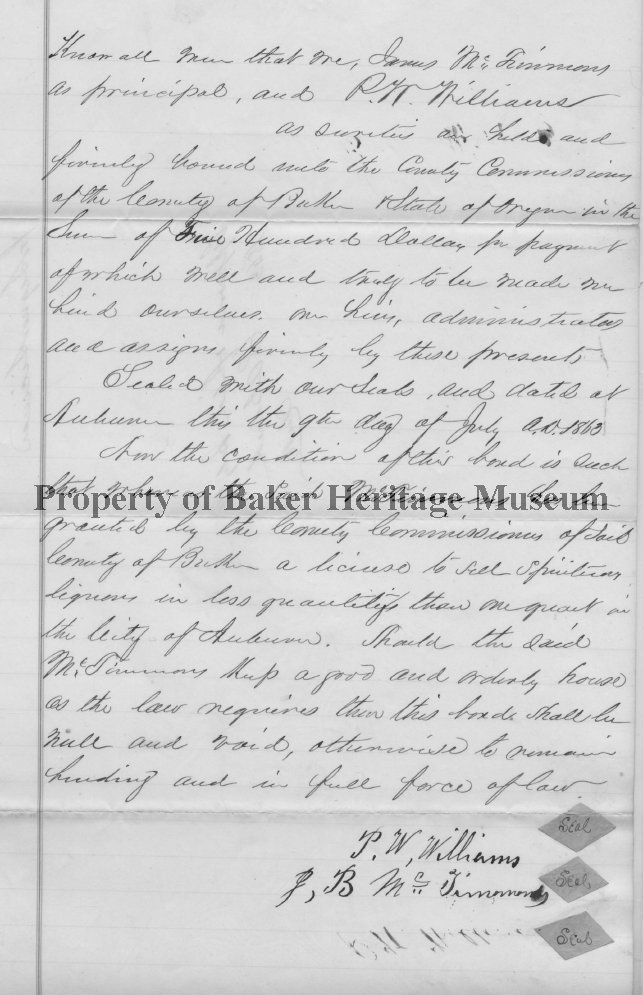 Know all men that we, James McTimmons
as principal, and P. W. Williams
as sureties are held and
firmly bound unto the County Commissioners
of the County of Baker & State of Oregon in the
Sum of Five Hundred Dollars for payment
of which well and truly to be made we
bind ourselves our heirs, administrators
and assigns firmly by these presents
Sealed with our Seals, and dated at
Auburn this the 9th day of July A.D. 1863
Now the condition of this bond is such
that the Said
Property of Baker Heritage Museum
granted by the County Commissioners of Said
County of Baker a license to sell Spirituous
liquors in less quantitys than one quart in
the City of Auburn. Should the said
McTimmons Keep a good and orderly house
as the law requires then this bond shall be
null and void, otherwise to remain
binding and in full force of law.
Seal
P. W, Williams
J, B McTimmons
Seal
Seal